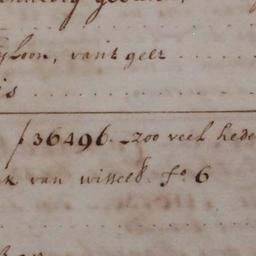 loon, vant gelt
is
f 36496. _zoo veel hede
k van wissell. fo. 6